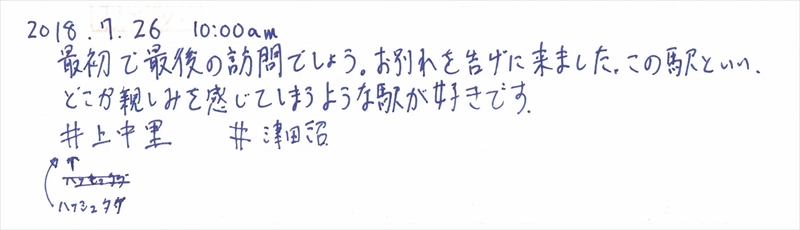 2018.7.26 10:00am
最初で最後の訪問でしょう。お別れを告げに来ました。この駅といい、
どこか親しみを感じてしまうような駅が好きです。
#上中里 #津田沼
ハッシュタグ